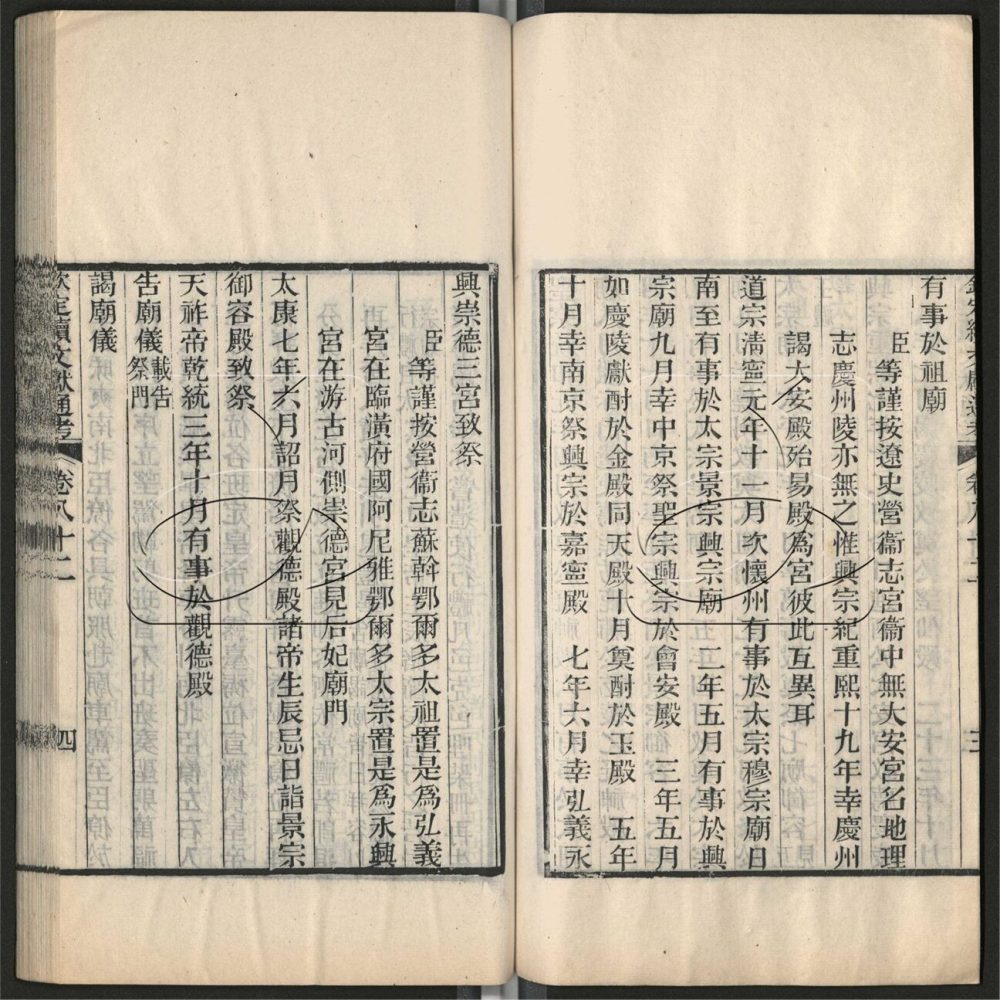 有事於祖廟
臣等謹按遼史營衞志宮衞中無大安宮名地理
志慶州陵亦無之惟興宗紀重熙十九年幸慶州
謁大安殿殆易殿為宮彼此互異耳
道宗淸寧元年十一月次懷州有事於太宗穆宗廟日
南至有事於太宗景宗興宗廟 二年五月有事於興
宗廟九月幸中京祭聖宗興宗於會安殿 三年五月
如慶陵獻酎於金殿同天殿十月奠酎於玉殿 五年
十月幸南京祭興宗於嘉寧殿 七年六月幸弘義永
興崇德三宮致祭
臣等謹按營衞志蘇斡鄂爾多太祖置是爲弘義
宮在臨潢府國阿尼雅鄂爾多太宗置是爲永興
宮在游古河側崇德宮見后妃廟門
太康七年六月詔月祭觀德殿諸帝生辰忌日詣景宗
御容殿致祭
天祚帝乾統三年十月有事於觀德殿
告廟儀載告祭門
謁廟儀
欽定續文獻通考 卷八十二 四